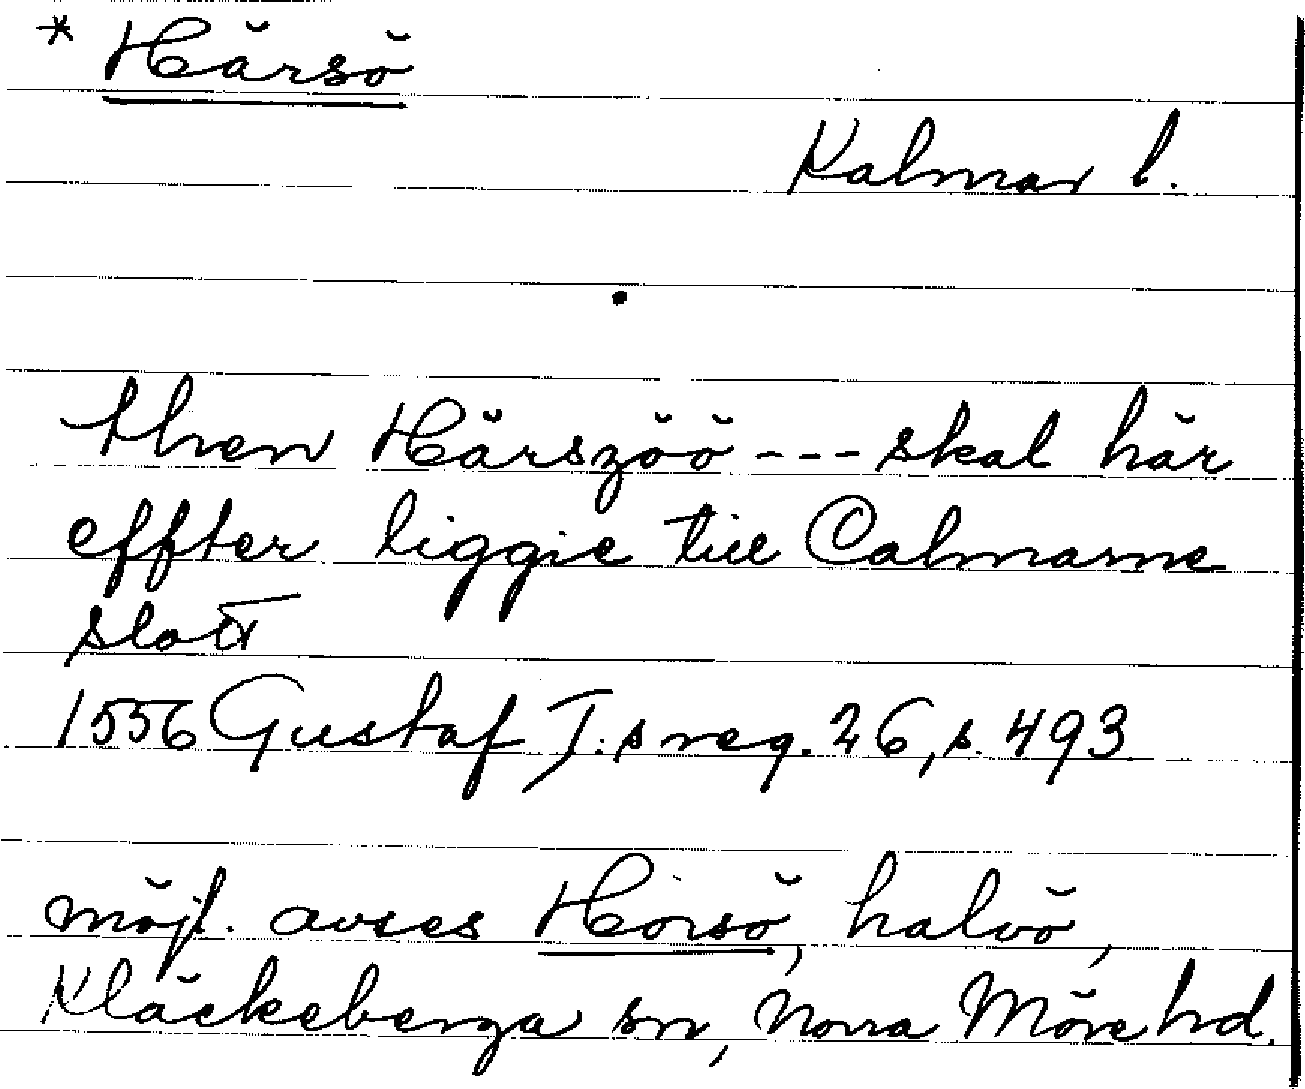 * Härsö
Kalmar l.
then Härszöö --- skal här
effter liggie till Calmarne
slott
1556 Gustaf I:s reg. 26, s. 493
möjl. avses Horsö, halvö,
Kläckeberga sn, Norra Möre hd.